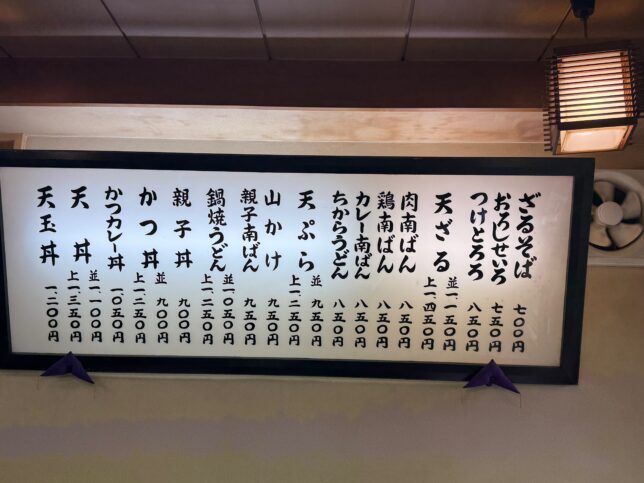 ざるそば 七〇〇円
おろしせいろ 七五〇円
つけとろろ 八五〇円
天ざる 並一、一五〇円 上一、四五〇円
肉南ばん 八五〇円
鶏南ばん 八五〇円
カレー南ばん 八五〇円
ちからうどん 八五〇円
天ぷら 並 九五〇円 上一、二五〇円
山かけ 九五〇円
親子南ばん 九五〇円
鍋焼うどん 並一〇五〇円 上一、二五〇円
親子丼 九〇〇円
かつ丼 並 九〇〇円 上一、二五〇円
かつカレー丼 一〇五〇円
天丼 並一、一〇〇円 上一、三五〇円
天玉丼 一、二〇〇円